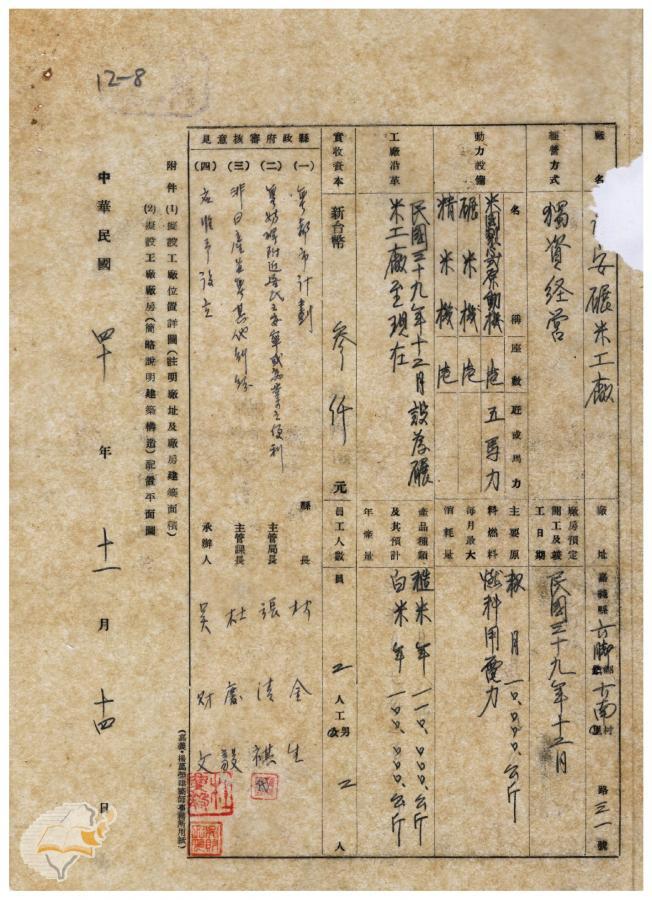 12-8
廠名 安碾米工廠
廠址 嘉義縣六腳鄉 南村 路三一號
經營方式 獨資経营
廠房預定開工及竣工日期 民國三十九年十二月
動力設備
名稱 座數 匹或馬力
米國製 式原動機 壱 五馬力
碾米機 壱
精米機 壱
主要原料燃料每月最大消耗量
穀 月一〇、〇〇〇公斤
燃料用電力
工廠沿革
民國三十九年十二月設為碾
米工廠至現在
產品種類及其預計年產量
糙米年 〇〇、〇〇〇公斤
白米年一〇〇、〇〇〇公斤
實收資本 新台幣 參仟 元
員工人數 員 二人 工 男女 二人
縣政府審核意見
(一) 都市計劃
(二) 妨碍附近居民
(三) 非日產
(四) 准予設立
縣長 林金生
主管局長 張 祺
主管課長 杜
承辦人 吳財文
附件 (1)擬設工廠位置詳圖(註明廠址及廠房建築面積)
(2)擬設工廠廠房(簡略說明建築構造)配置平面圖
中華民國 四十 年 十一 月 十四 日